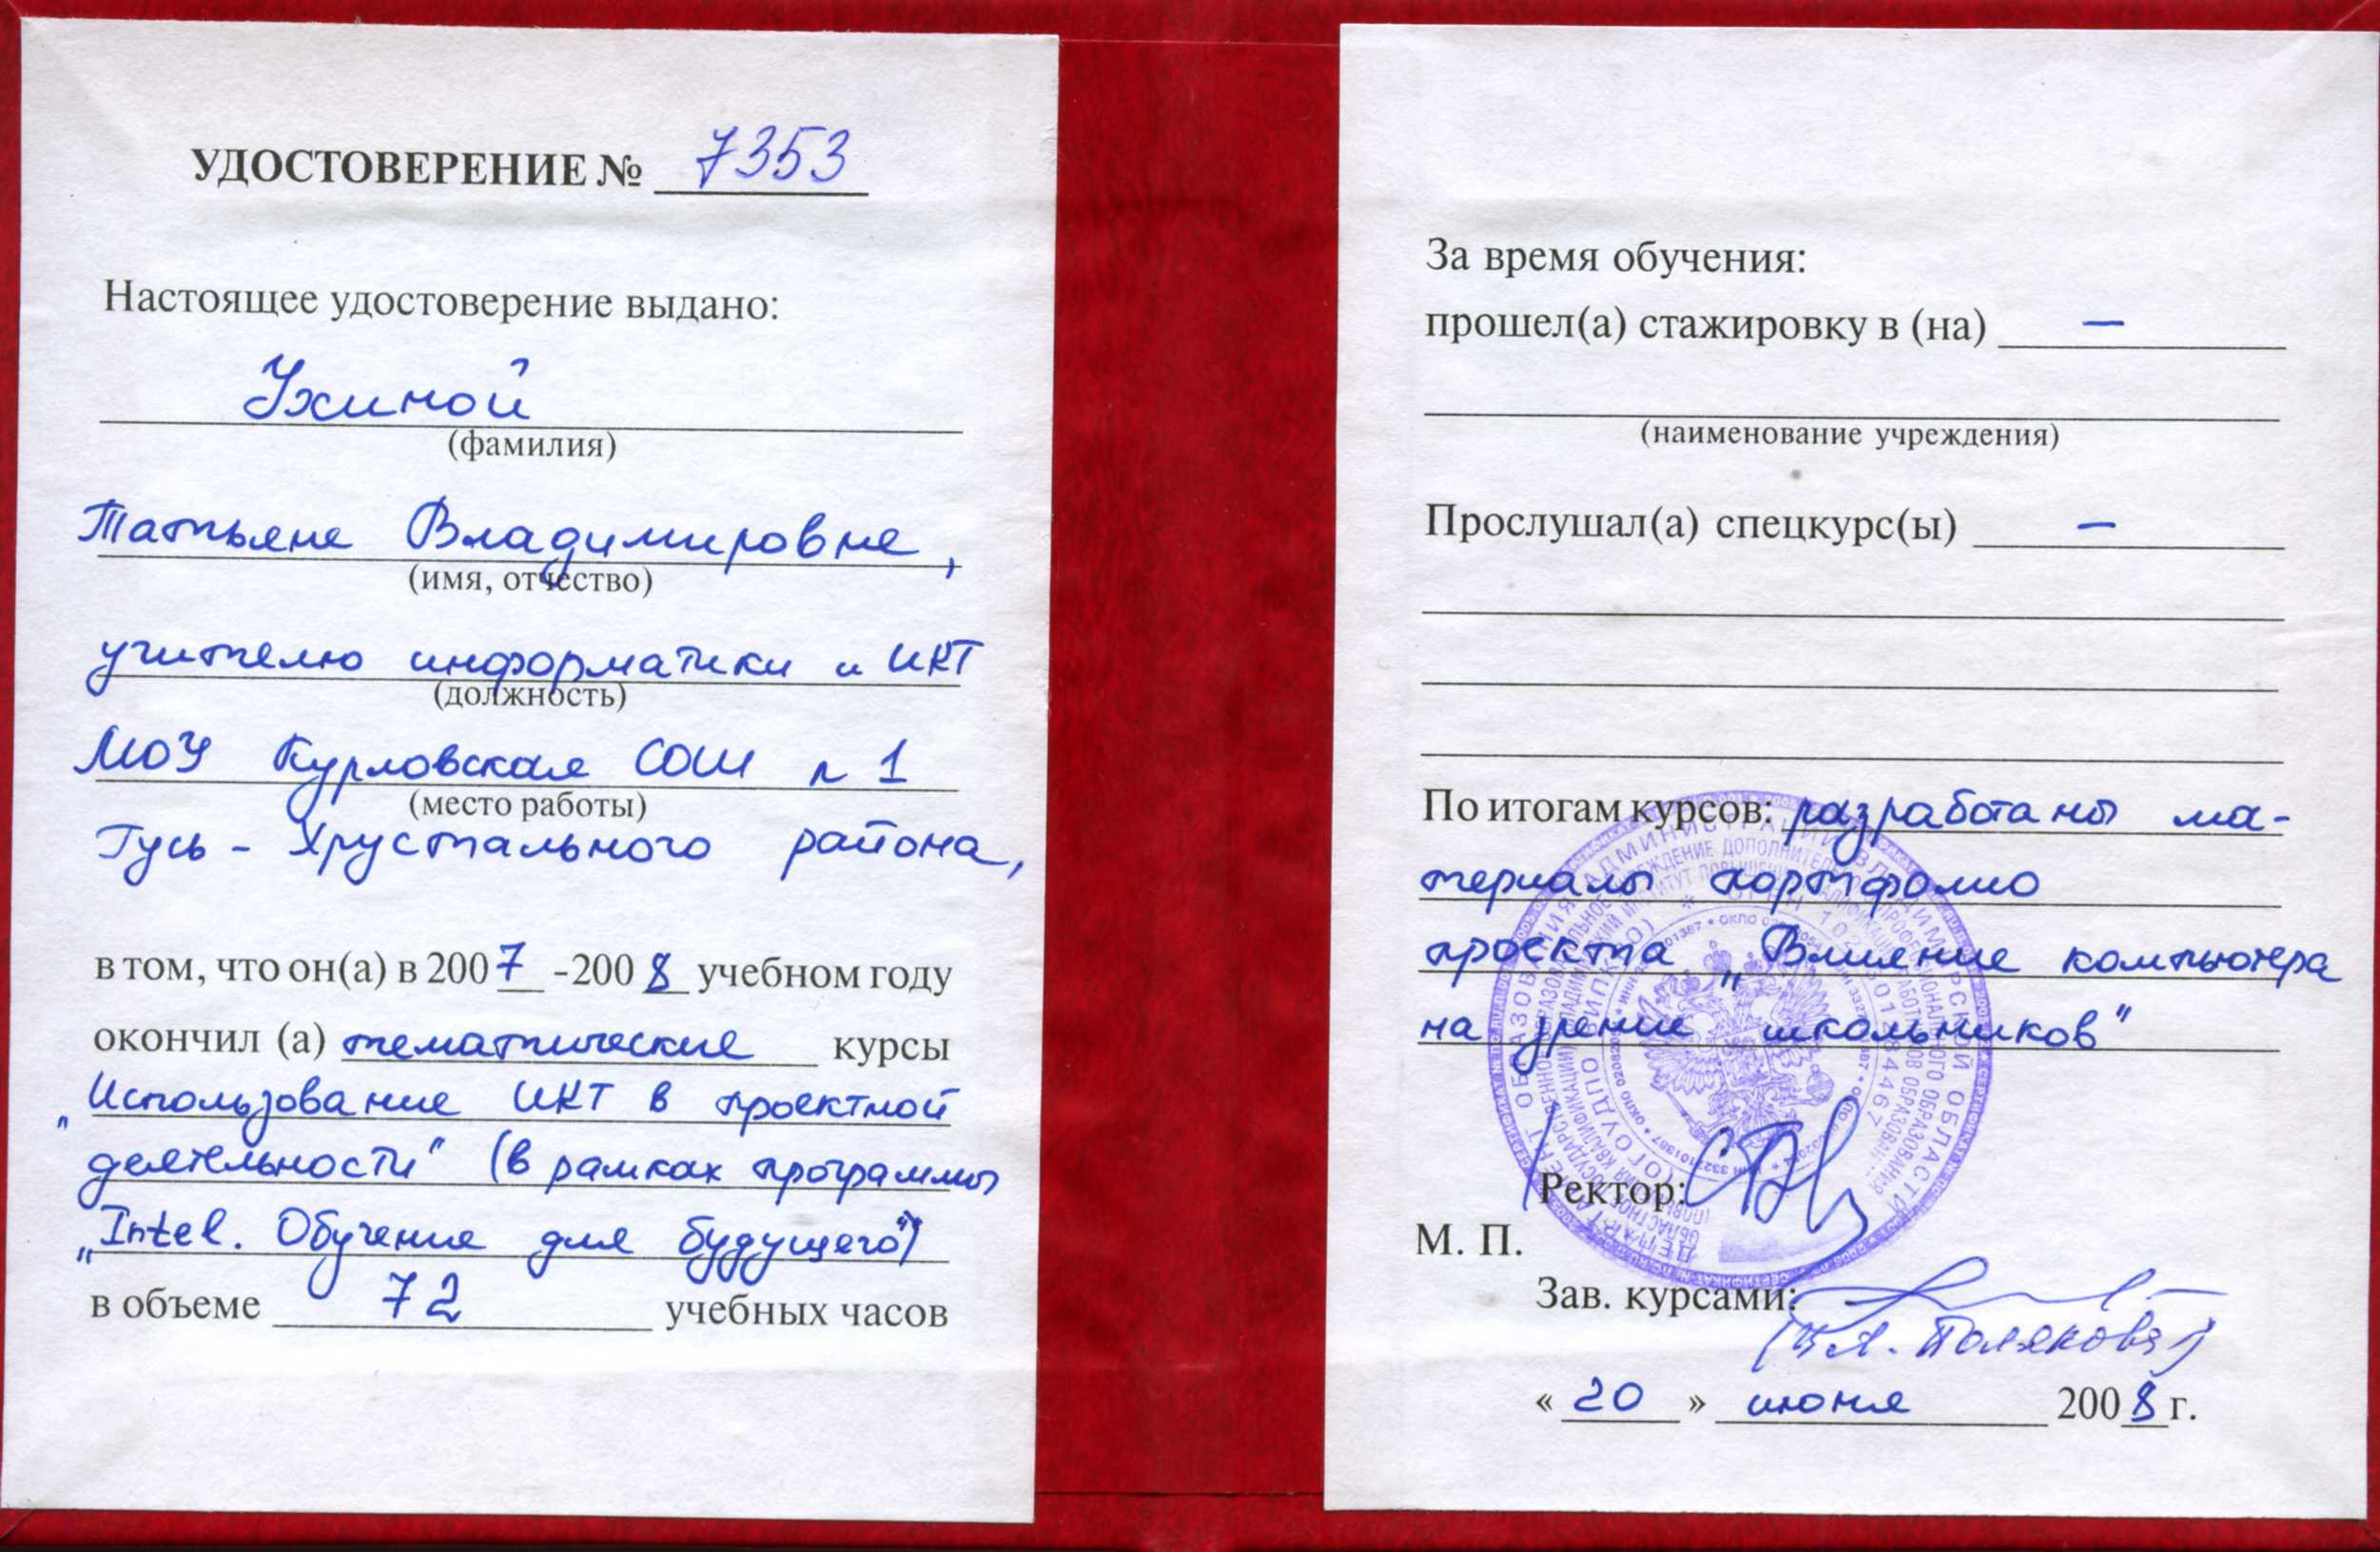 УДОСТОВЕРЕНИЕ № 7353
Настоящее удостоверение выдано:
Ухиной
(фамилия)
Татьяне Владимировне,
(имя, отчество)
учителю информатики и ИКТ
(должность)
МОУ Курловская СОШ n 1
(место работы)
Гусь - Хрустального района,
в том, что он(а) в 2007 -2008 учебном году
окончил (а) тематические курсы
„Использование ИКТ в проектной
деятельности" (в рамках программы
„Intel. Обучение для будущего")
в объеме 72 учебных часов
За время обучения:
прошел(а) стажировку в (на) —
(наименование учреждения)
Прослушал(а) спецкурс(ы) —
По итогам курсов: разработаны ма-
териалы портфолио
проекта „Влияние компьютера
на зрение школьников"
Ректор:
М. П.
Зав. курсами:
Полякова)
« 20 » июня 2008 г.